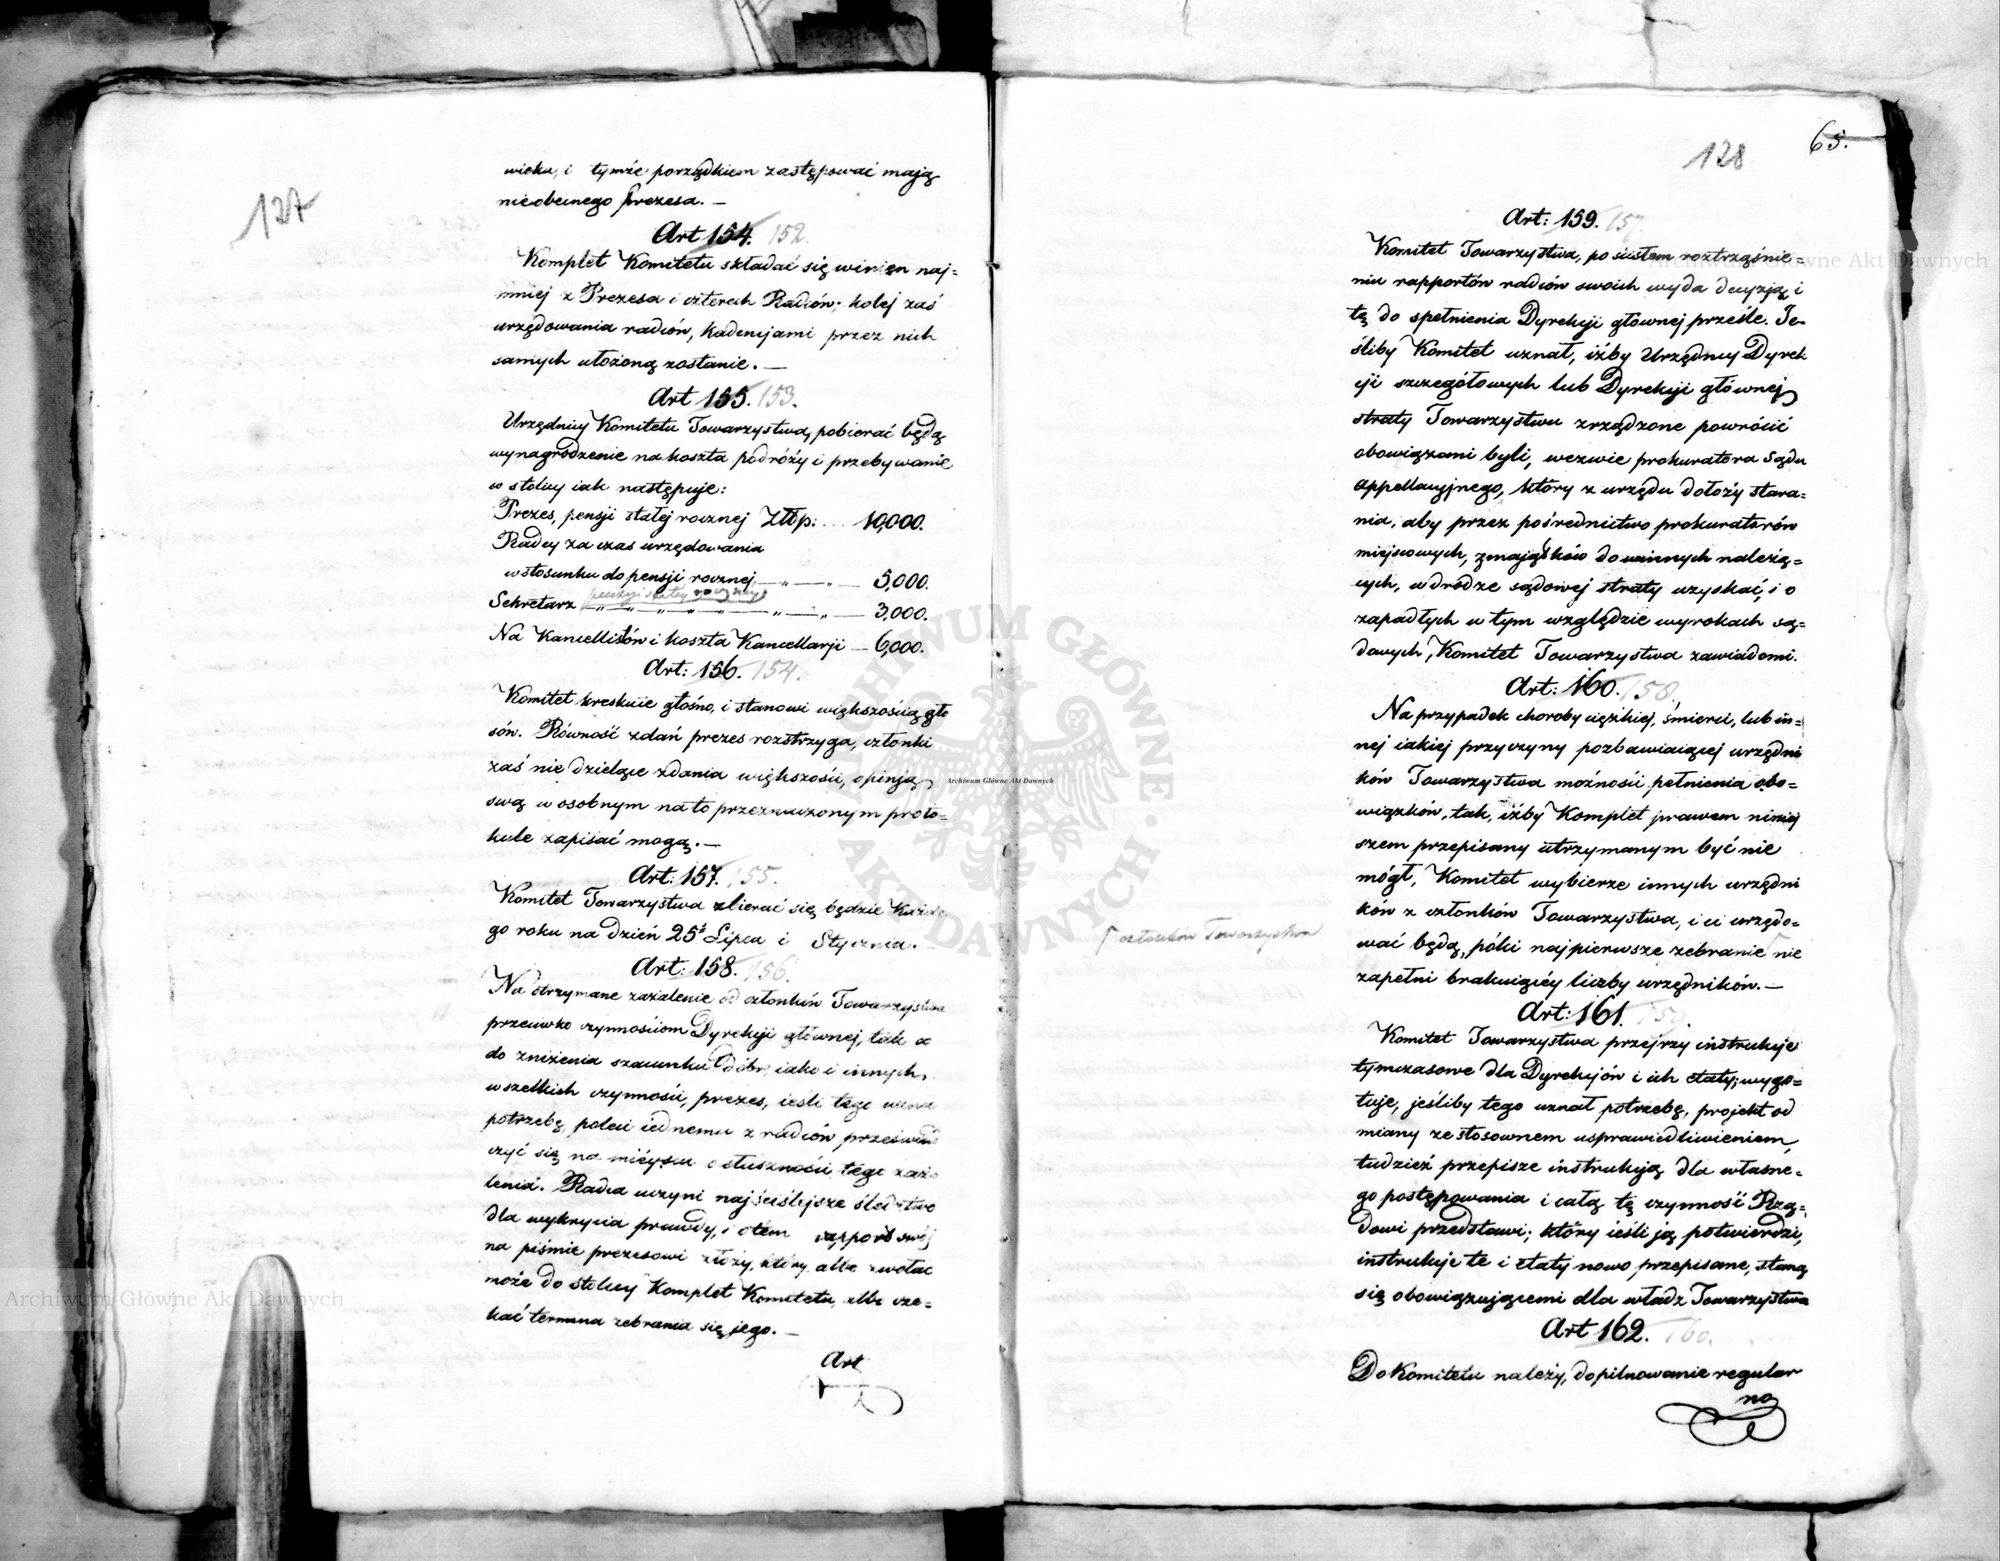 127
wieku, i tymże porządkiem zastępować mają
nieobecnego prezesa. —
Art 154. 152.
Komplet Komitetu składać się winien naj=
mniej z Prezesa i czterech Radców; kolej zaś
urzędowania radców, kadencjami przez nich
samych ułożoną zostanie. —
Art 155. 153.
Urzędnicy Komitetu Towarzystwa, pobierać będą
wynagrodzenie na koszta podróży i przebywanie
w stolicy iak następuje:
Prezes, pensji stałej rocznej Złtp: .... 10,000.
Radcy za czas urzędowania
w stosunku do pensji rocznej — „ — 5,000.
pensyi stałey roczney
Sekretarz — „ — „ — „ — 3,000.
Na Kancellistów i koszta Kancellarji — 6,000.
Art: 156. 154.
Komitet kreskuie głośno, i stanowi większością gło
sów. Równość zdań prezes rozstrzyga, członki
zaś nie dzielące zdania większości, opinją
swą w osobnym na to przeznaczonym proto=
kule zapisać mogą. —
Art: 157. 155.
Komitet Towarzystwa zbierać się będzie Każde
go roku na dzień 25º Lipca i Stycznia. —
Art: 158. 156.
Na otrzymane zażalenie od członków Towarzystwa
przeciwko czynnościom Dyrekcji głównej, tak co
do zniżenia szacunku dóbr, iako i innych
wszelkich czynności, prezes, ieśli tego uzna
potrzebę, poleci iednemu z radców, przeświad
czyć się na miéyscu o słuszności tego zaża-
lenia. Radca uczyni najściślejsze śledztwo
dla wykrycia prawdy, i o tem rapport swój
na piśmie prezesowi złoży, który albo zwołać
może do stolicy Komplet Komitetu, albo cze=
kać termina zebrania się jego. —
Art
128
65.
Art: 159. 157.
Komitet Towarzystwa, po ścisłem roztrząśnie=
niu rapportów radców swoich wyda decyzją i
tę do spełnienia Dyrekcji głównej prześle. Je-
śliby Komitet uznał, iżby Urzędnicy Dyrek
cji szczegółowych lub Dyrekcji głównej
straty Towarzystwu zrządzone powrócić
obowiązani byli, wezwie prokuratora Sądu
appellacyjnego, który z urzędu dołoży stara=
nia, aby przez pośrednictwo prokuratorów
miejscowych, z majątków do winnych należą=
cych, w drodze sądowej straty uzyskać, i o
zapadłych w tym względzie wyrokach są=
dowych, Komitet Towarzystwa zawiadomi.
Art: 160. 158.
Na przypadek choroby ciężkiej, śmierci, lub in=
nej iakiej przyczyny pozbawiaiącej urzędni
ków Towarzystwa możności pełnienia obo=
wiązków, tak, iżby Komplet prawem niniej
szem przepisany utrzymanym być nie
mógł, Komitet wybierze innych urzędni
ków z członków Towarzystwa, i ci urzędo=
wać będą, póki najpierwsze zebranie nie
zapełni brakuiącéy liczby urzędników. —
członków Towarzystwa
Art: 161. 159.
Komitet Towarzystwa przejrzy instrukcje
tymczasowe dla Dyrekcjów i ich etaty; wygo=
tuje, jeśliby tego uznał potrzebę, projekt od
miany ze stosownem usprawiedliwieniem,
tudzież przepisze instrukcją dla własne=
go postępowania i całą tę czynność Rzą=
dowi przedstawi; który ieśli ją potwierdzi,
instrukcje te i etaty nowo przepisane, staną
się obowiązującemi dla władz Towarzystwa
Art 162. 160.
Do Komitetu należy, dopilnowanie regular
no
Archiwum Główne Akt Dawnych
ARCHIWUM GŁÓWNE AKT DAWNYCH
Archiwum Główne Akt Dawnych
Archiwum Główne Akt Dawnych